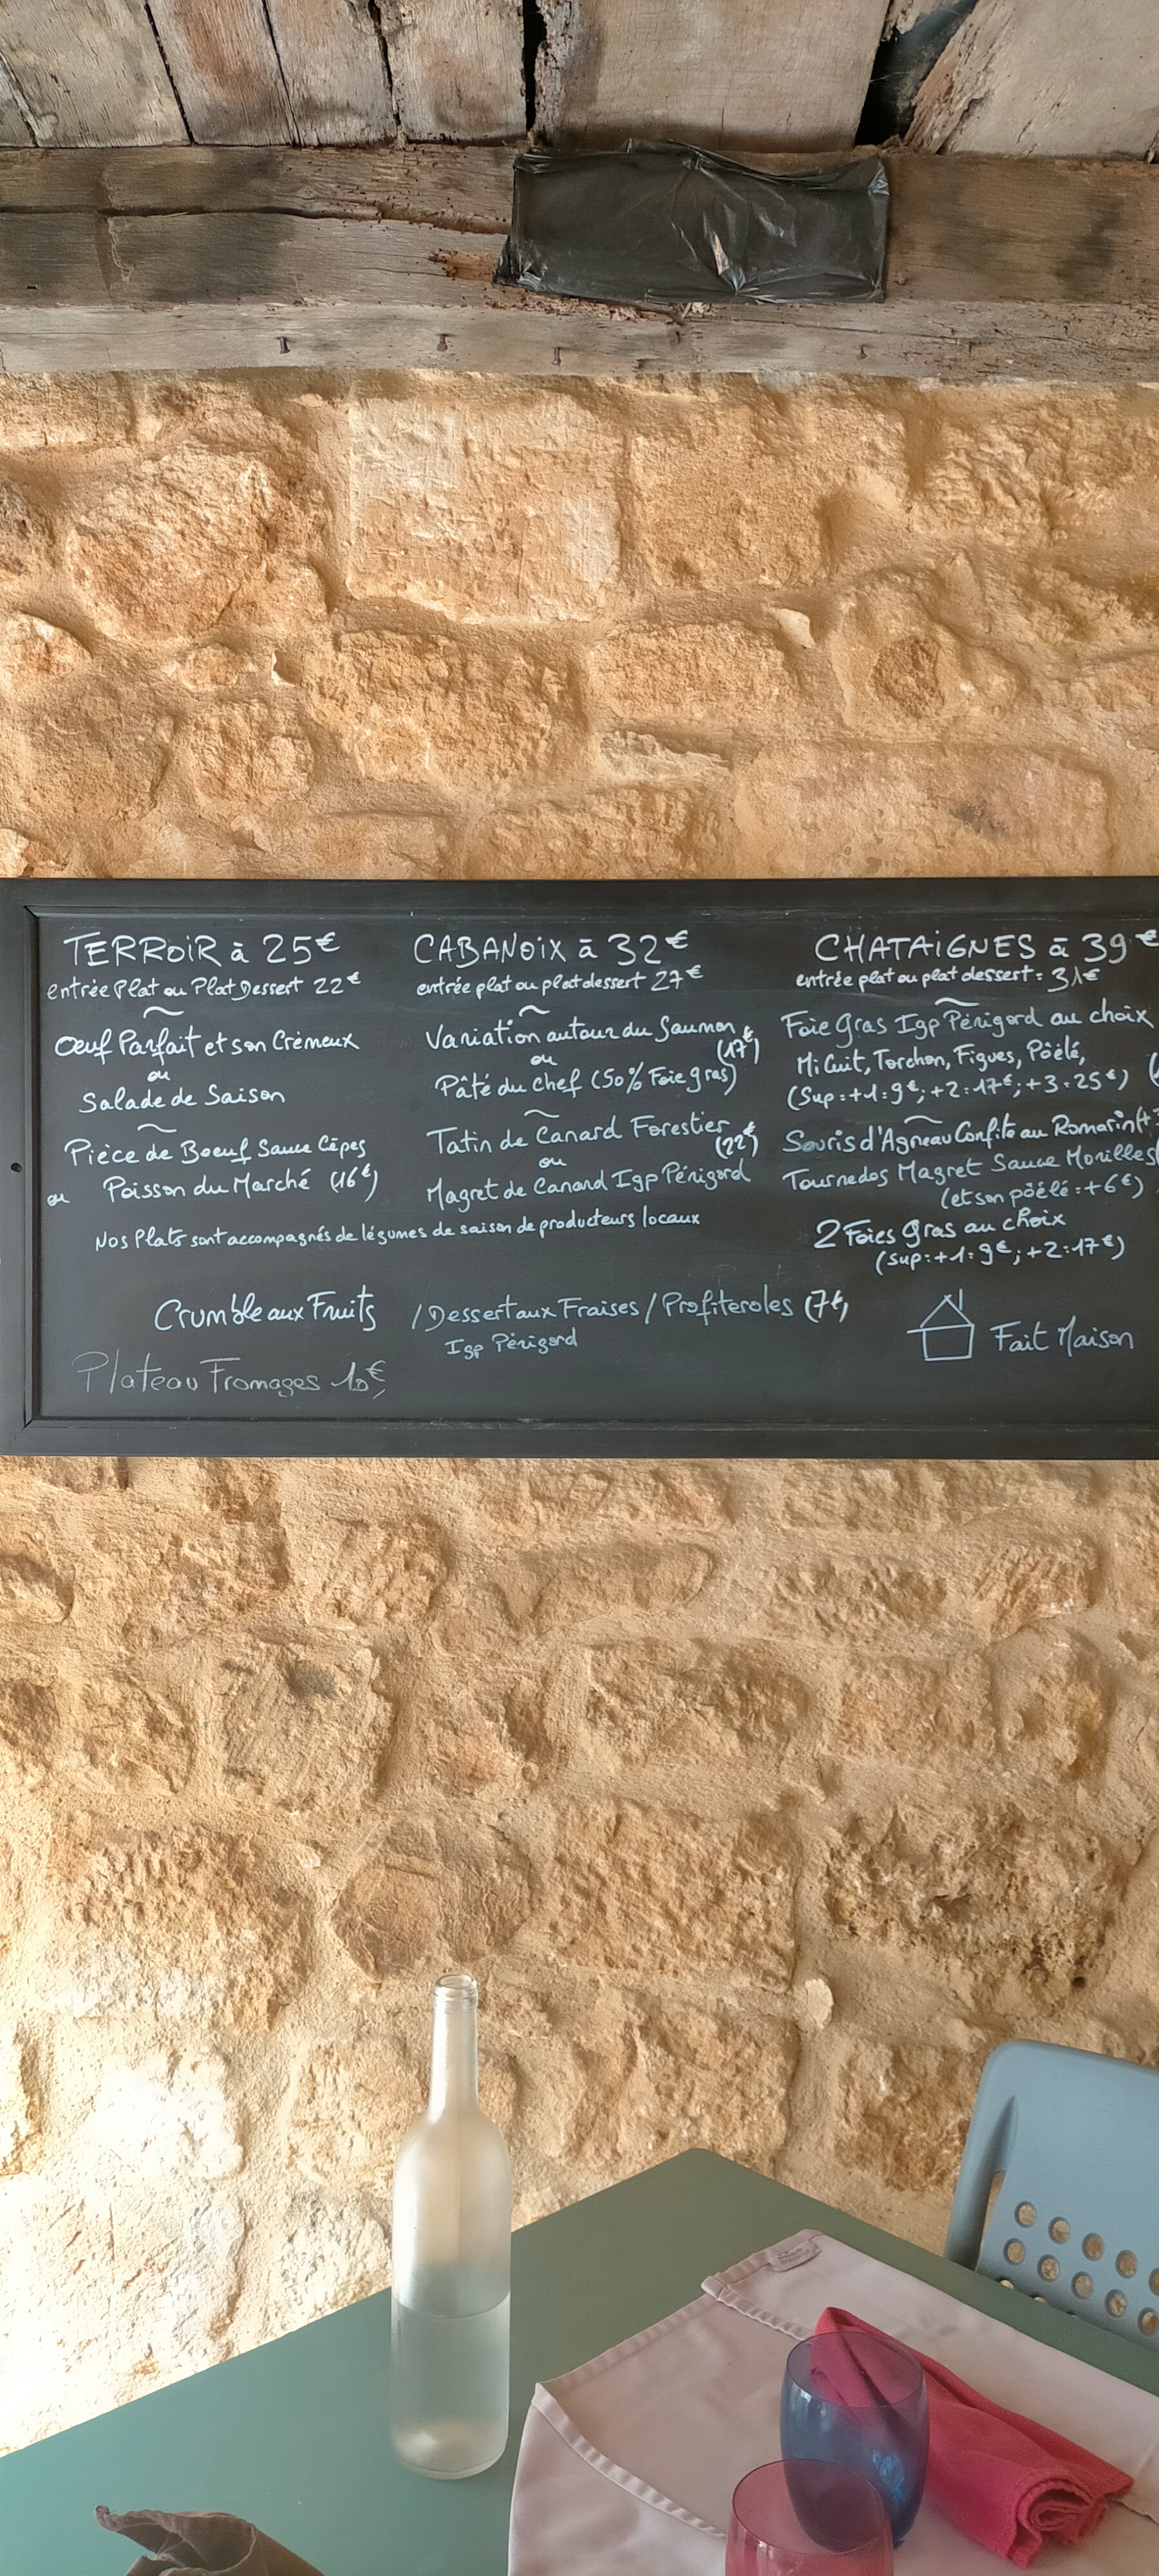 TERROIR à 25€
entrée Plat ou Plat Dessert 22€
Œuf Parfait et son Crémeux
ou
Salade de Saison
Pièce de Boeuf Sauce Cèpes
ou Poisson du Marché (16€)
CABANOIX à 32€
entrée plat ou plat dessert 27€
Variation autour du Saumon
ou (17€)
Pâté du chef (50% Foie gras)
Tatin de Canard Forestier
ou (22€)
Magret de Canard Igp Périgord
Nos Plats sont accompagnés de légumes de saison de producteurs locaux
CHATAIGNES à 39€
entrée plat ou plat dessert = 31€
Foie Gras Igp Périgord au choix
Mi Cuit, Torchon, Figues, Pôêlé,
(Sup=+1=9€; +2=17€; +3=25€)
Souris d'Agneau Confite au Romarin
Tournedos Magret Sauce Morilles
(et son pôêlé=+6€)
2 Foies gras au choix
(sup=+1=9€; +2=17€)
Crumble aux Fruits / Dessert aux Fraises / Profiteroles (7€)
Igp Périgord
Plateau Fromages 10€
Fait Maison